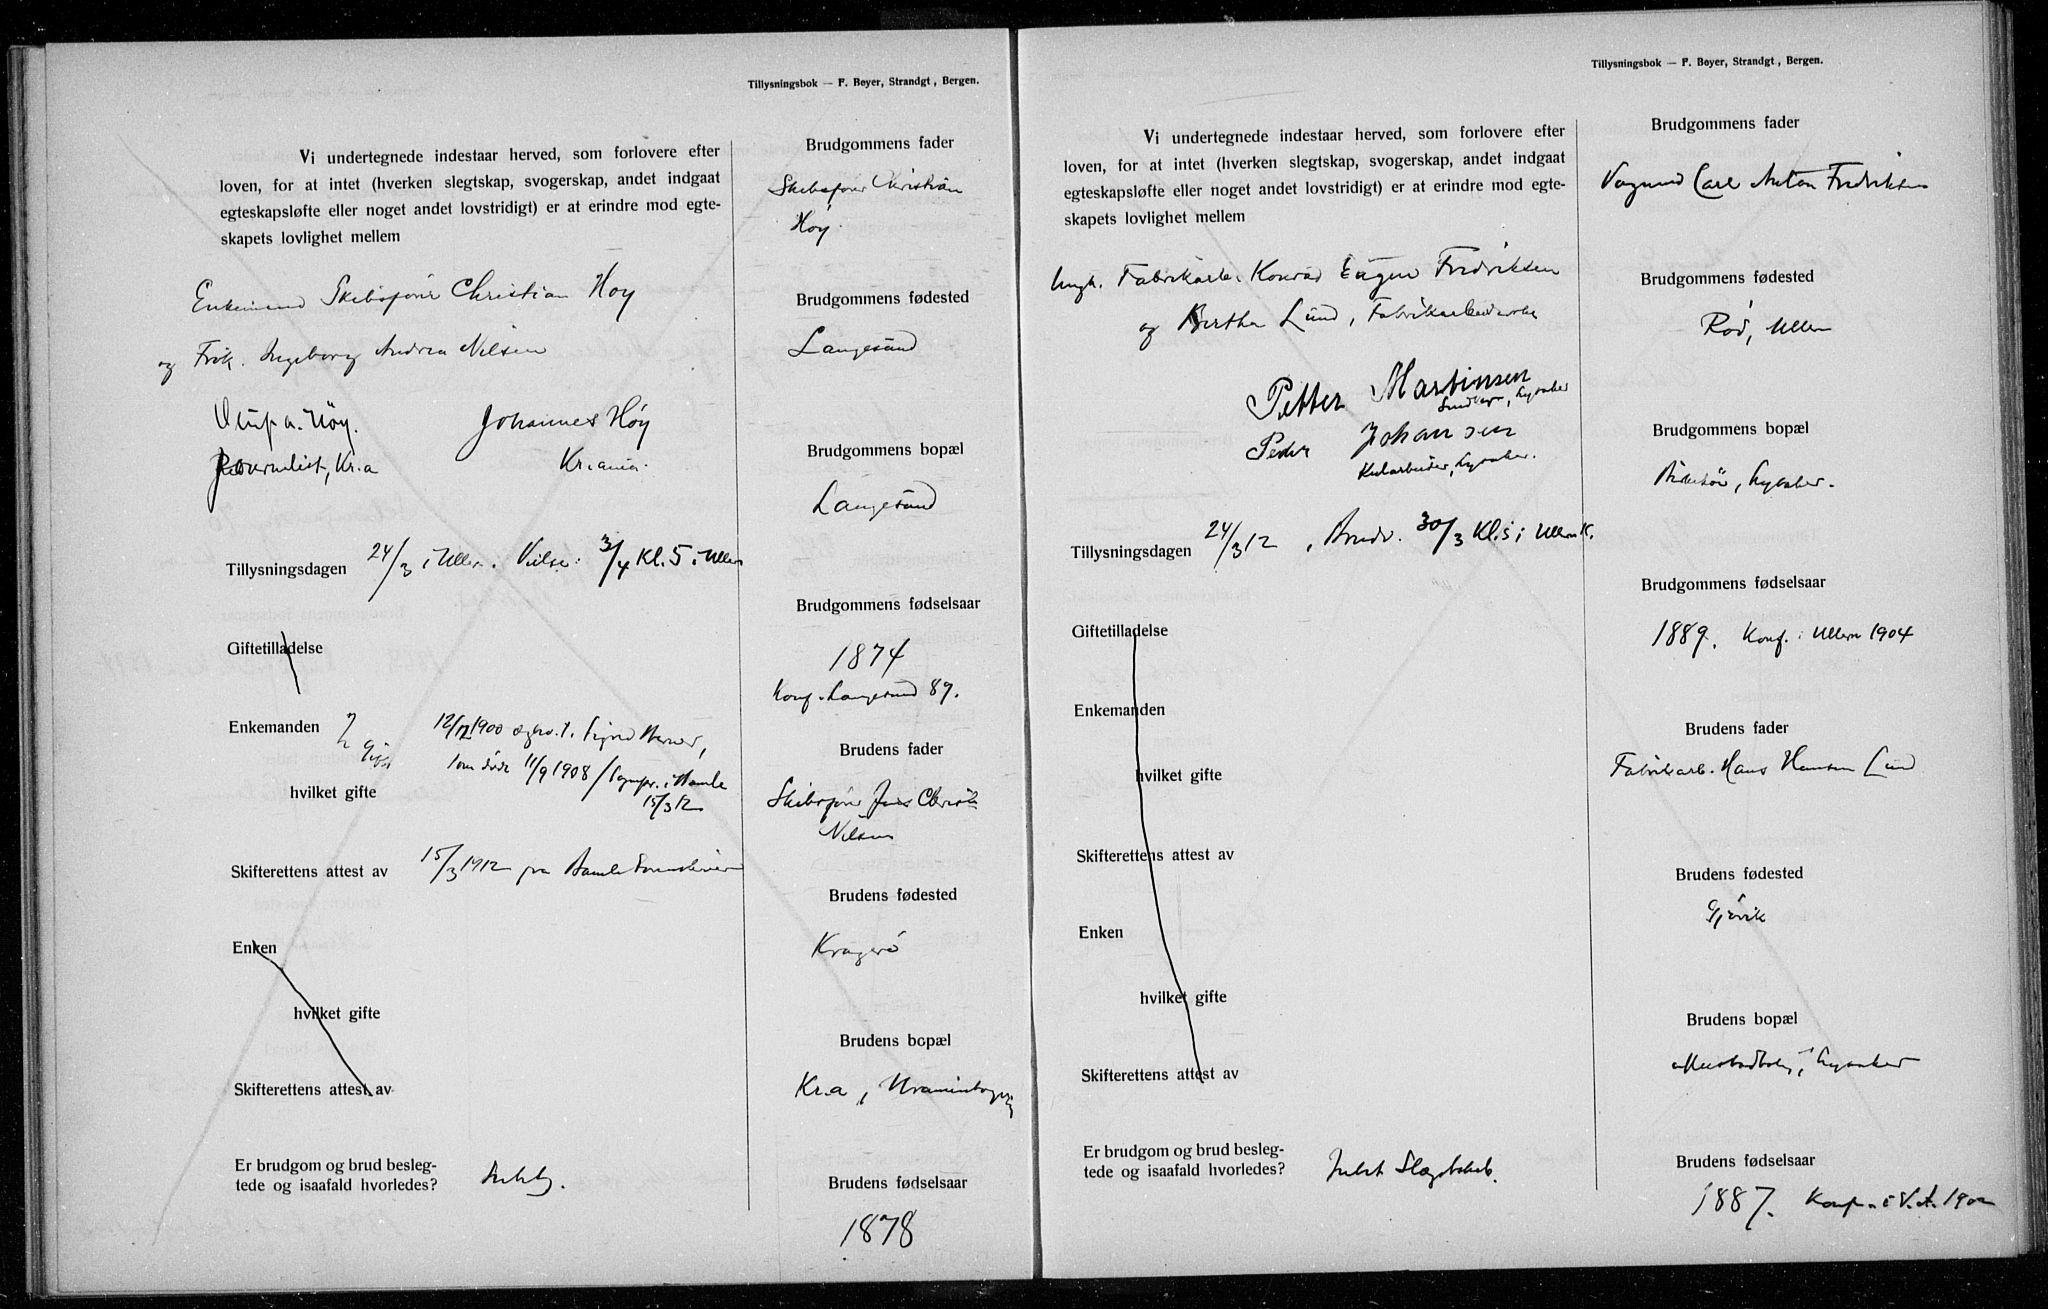 Tillysningsbok — F. Beyer, Strandgt, Bergen.
Vi undertegnede indestaar herved, som forlovere efter
loven, for at intet (hverken slegtskap, svogerskap, andet indgaat
egteskapsløfte eller noget andet lovstridigt) er at erindre mod egte-
skapets lovlighet mellem
Enkemand Skibsfører Christian Høy
og Frøk. Ingeborg Andrea Nilsen
Oluf A. Høy. Johannes Høy
Journalist, Kr.a Kr.ania.
Tillysningsdagen 24/3 i Ullern. Vielse: 3/4 Kl. 5 i Ullern
Giftetilladelse
Enkemanden 12/12 1900
hvilket gifte som døde 11/9 1908
15/3 12
Skifterettens attest av 15/3 1912 fra Bamle Sorenskriver
Enken
hvilket gifte
Skifterettens attest av
Er brudgom og brud besleg-
tede og isaafald hvorledes?
Brudgommens fader
Skibsfører Christian
Høy
Brudgommens fødested
Langesund
Brudgommens bopæl
Langesund
Brudgommens fødselsaar
1874
Konf. Langesund 89.
Brudens fader
Skibsfører Jens Christian
Nilsen
Brudens fødested
Kragerø
Brudens bopæl
Kr.a,
Brudens fødselsaar
1878
Tillysningsbok — F. Beyer, Strandgt, Bergen.
Vi undertegnede indestaar herved, som forlovere efter
loven, for at intet (hverken slegtskap, svogerskap, andet indgaat
egteskapsløfte eller noget andet lovstridigt) er at erindre mod egte-
skapets lovlighet mellem
Ungk. Fabrikarb. Konrad Eugen Fredriksen
og Berthe Lund, Fabrikarbeiderske
Petter Martinsen
Lysaker
Peder Johansen
Lysaker.
Tillysningsdagen 24/3 12, Brudv. 30/3 Kl. 5 i Ullern K.
Giftetilladelse
Enkemanden
hvilket gifte
Skifterettens attest av
Enken
hvilket gifte
Skifterettens attest av
Er brudgom og brud besleg-
tede og isaafald hvorledes? Intet Slægtskab.
Brudgommens fader
Vognmd Carl Anton Fredriksen
Brudgommens fødested
Rød, Ullern
Brudgommens bopæl
Lysaker.
Brudgommens fødselsaar
1889. Konf. i Ullern 1904
Brudens fader
Fabrikarb. Hans Hansen Lund
Brudens fødested
Gjøvik
Brudens bopæl
Mustadbolig, Lysaker
Brudens fødselsaar
1887. Konf. i V.A. 1902